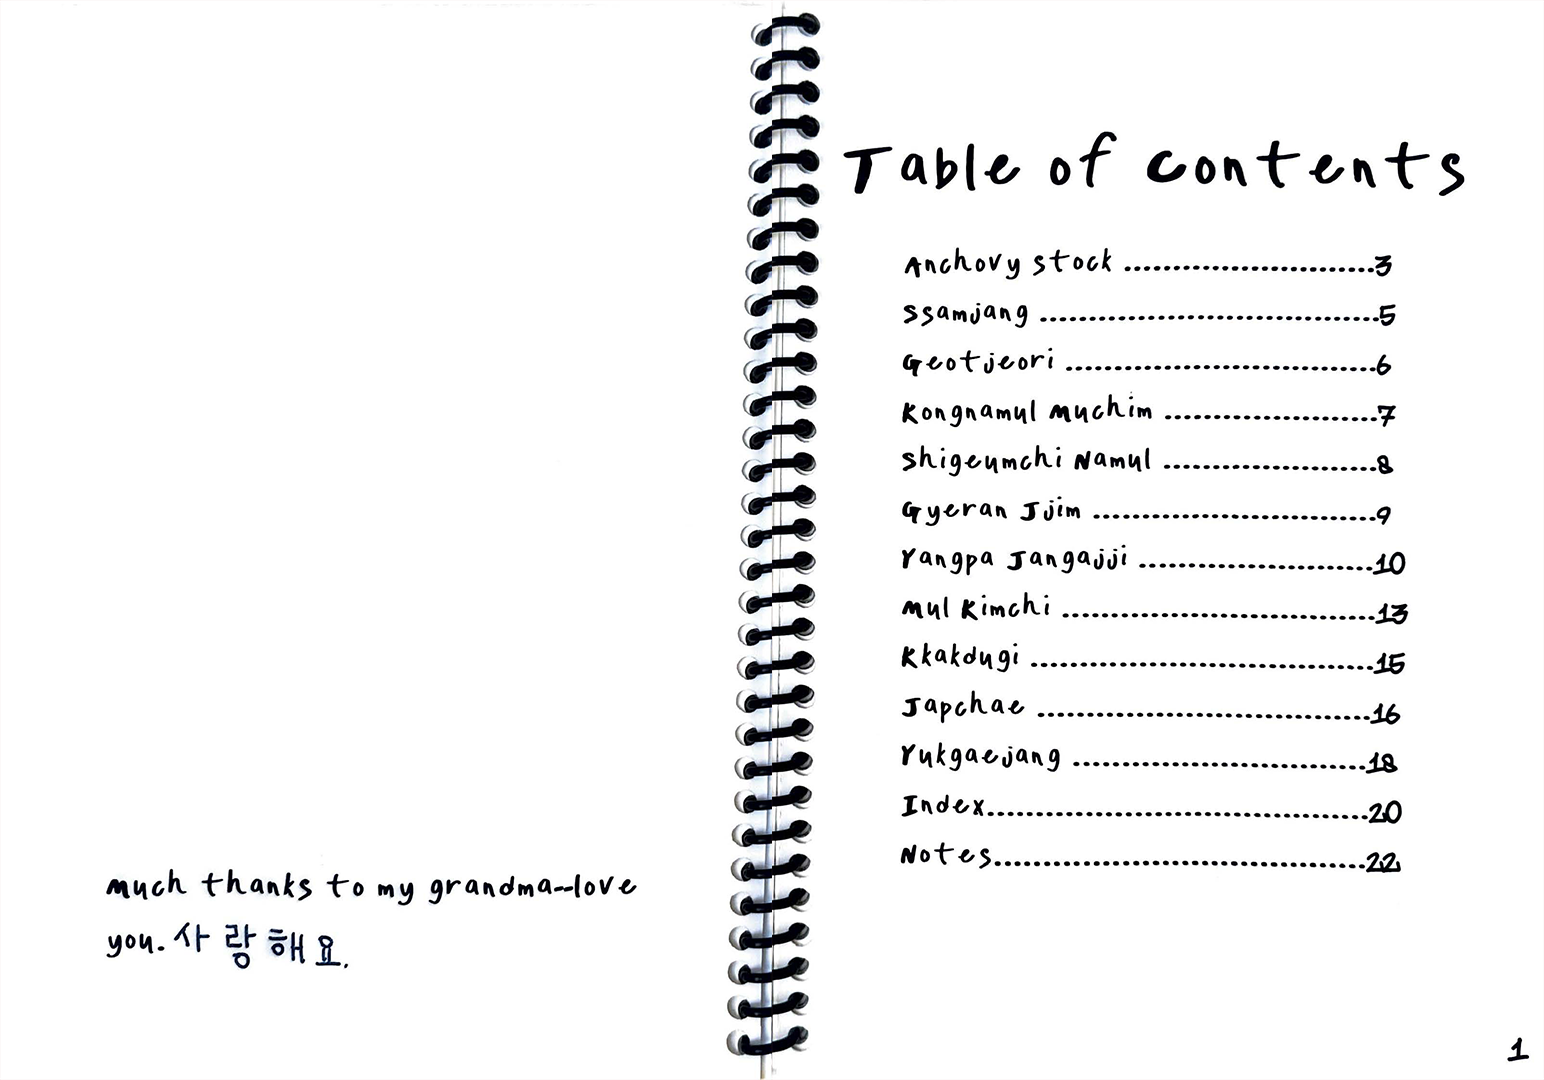 much thanks to my grandma--love
you. 사랑해요.
Table of contents
Anchovy stock ..........................3
Ssamjang ..................................5
Geotjeori ................................6
Kongnamul Muchim ......................7
Shigeumchi Namul ......................8
Gyeran Jjim .............................9
Yangpa Jangajji ........................10
Mul Kimchi ................................13
Kkakdugi ...................................15
Japchae ..................................16
Yukgaejang ..............................18
Index.......................................20
Notes......................................22
1